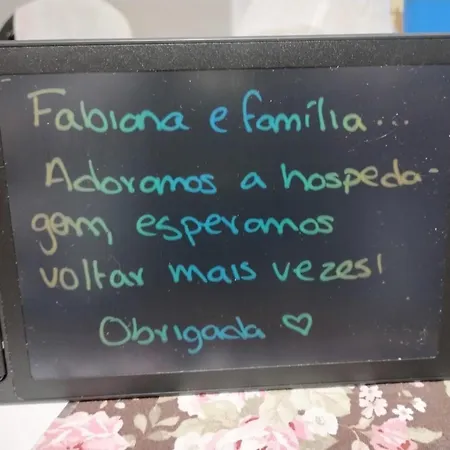 Fabiana e família...
Adoramos a hospeda-
gem, esperamos
voltar mais vezes!
Obrigada ♡